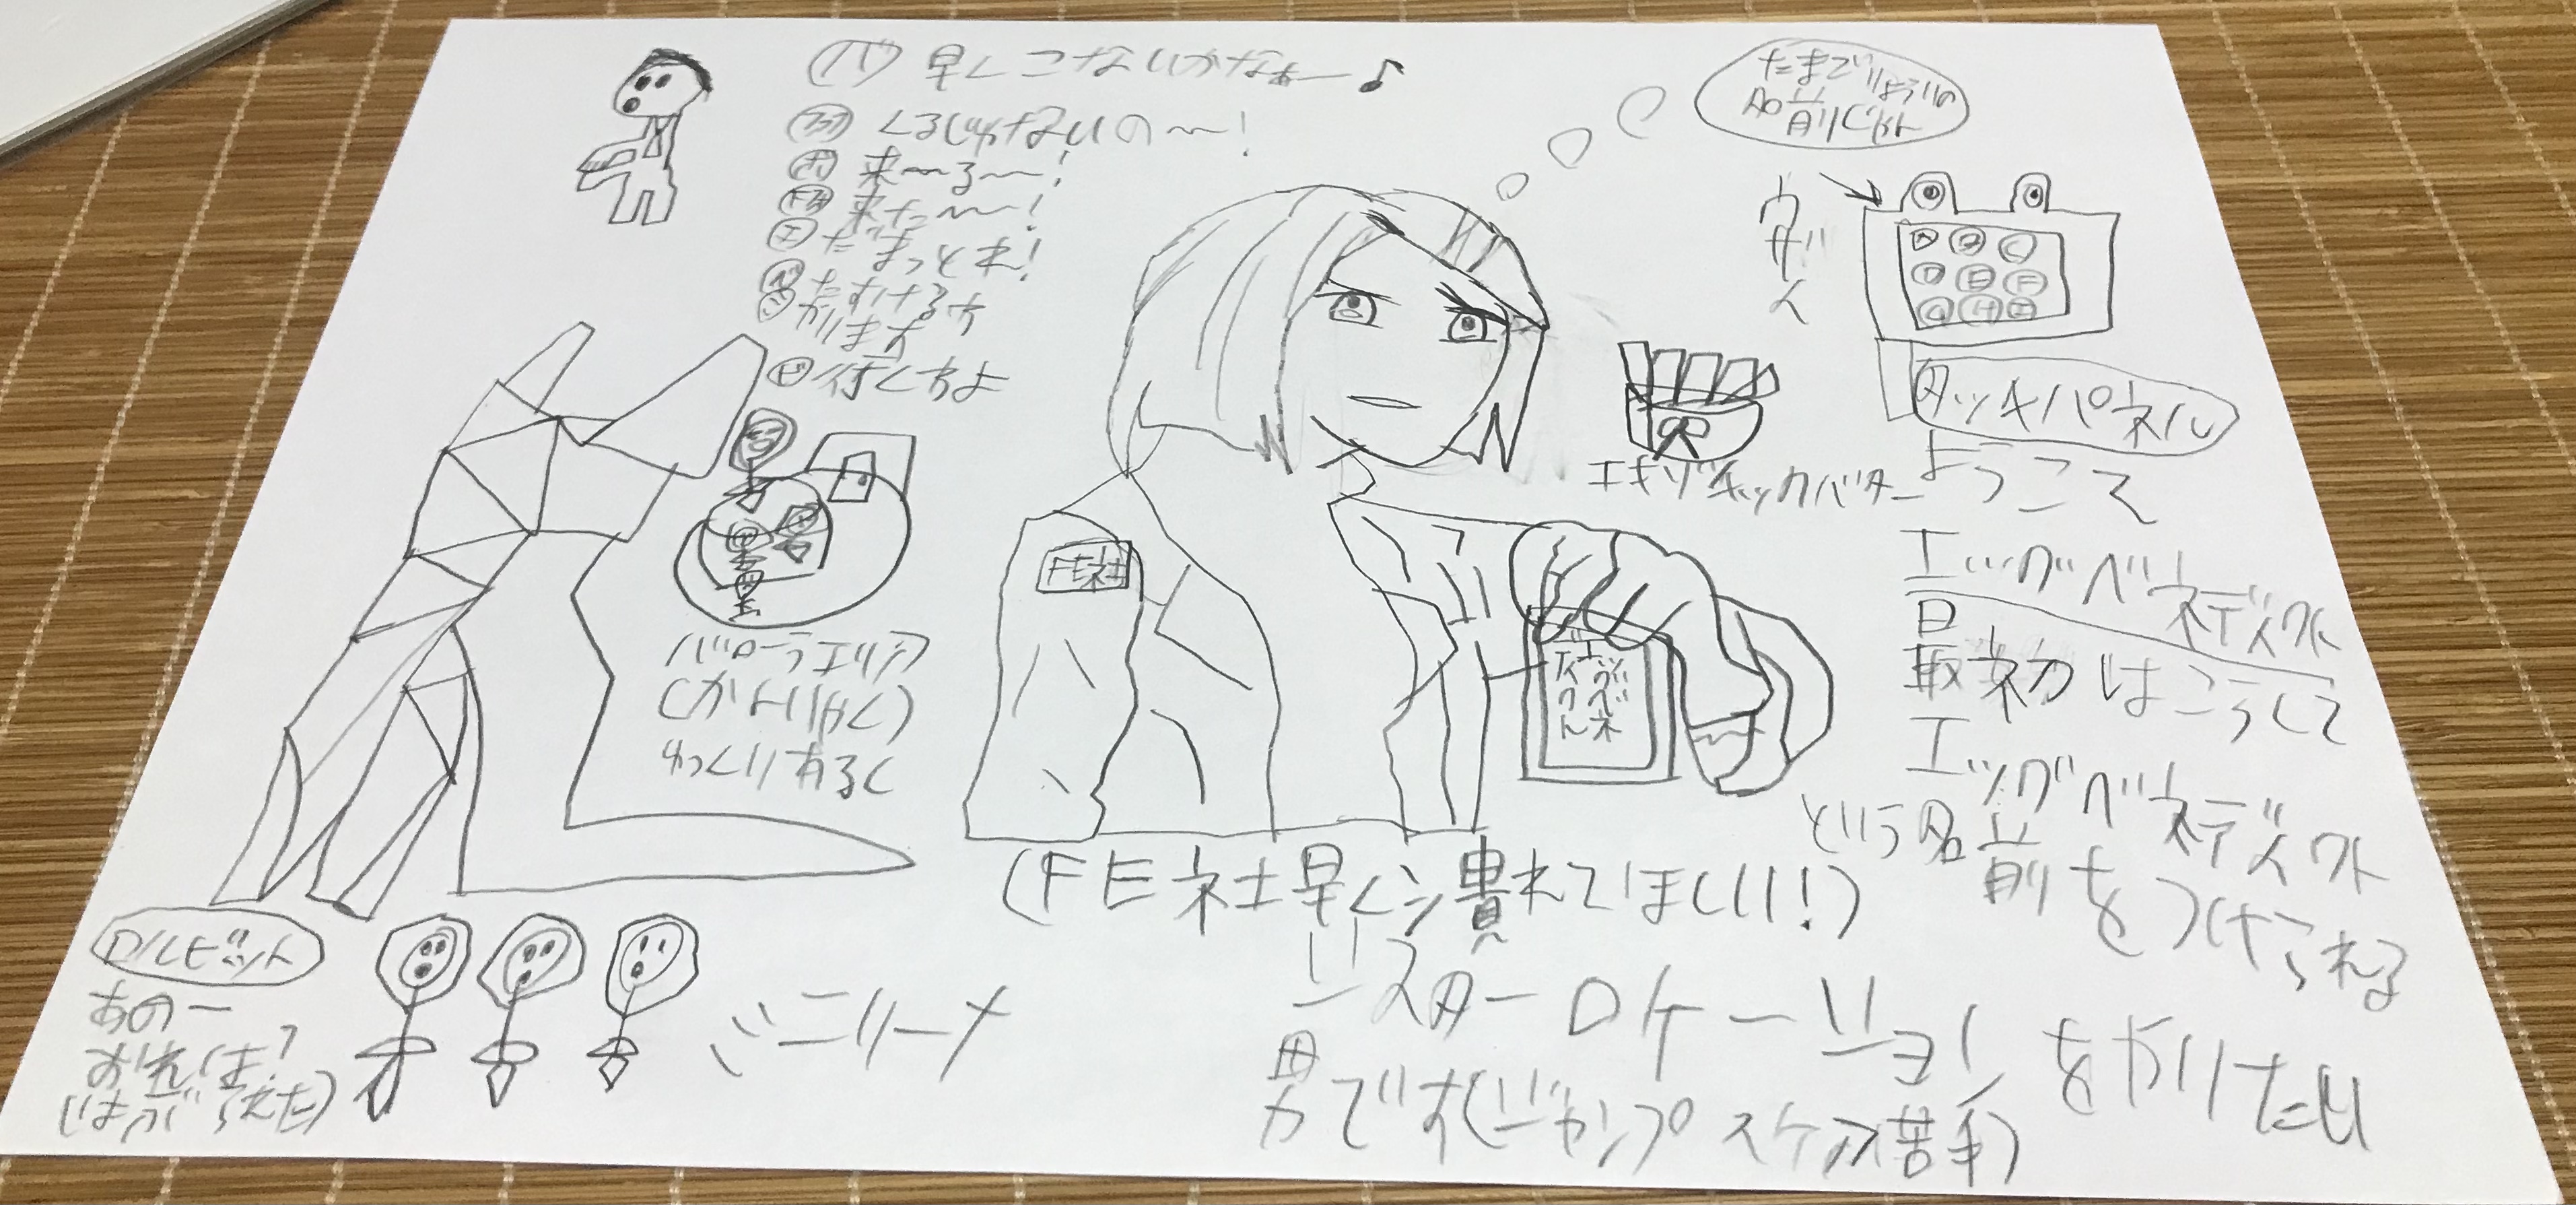 バ 早くこないかなぁー♪
くるじゃないの〜!
来〜る〜!
来た〜〜!
エ だまっとれ!
たすけるっす
かります
ビ 行くちよ
たまごりょうりの
名前じゃん
ウザイ
A B C
D E F
G H I
タッチパネル
エキゾチックバター
ようこそ
エッグベネディクト
最初はこうして
エッグベネディクト
という名前をつけられる
FE社
エッグベネ
ディクト
バローラエリア
(かトリかく)
ゆっくり有るく
(FE社早く潰れてほしい!)
シスターロケーションをやりたい
男です(ジャンプスケア苦手)
ロルビット
あのー
おれは?
(はぶられた)
ミニリーナ